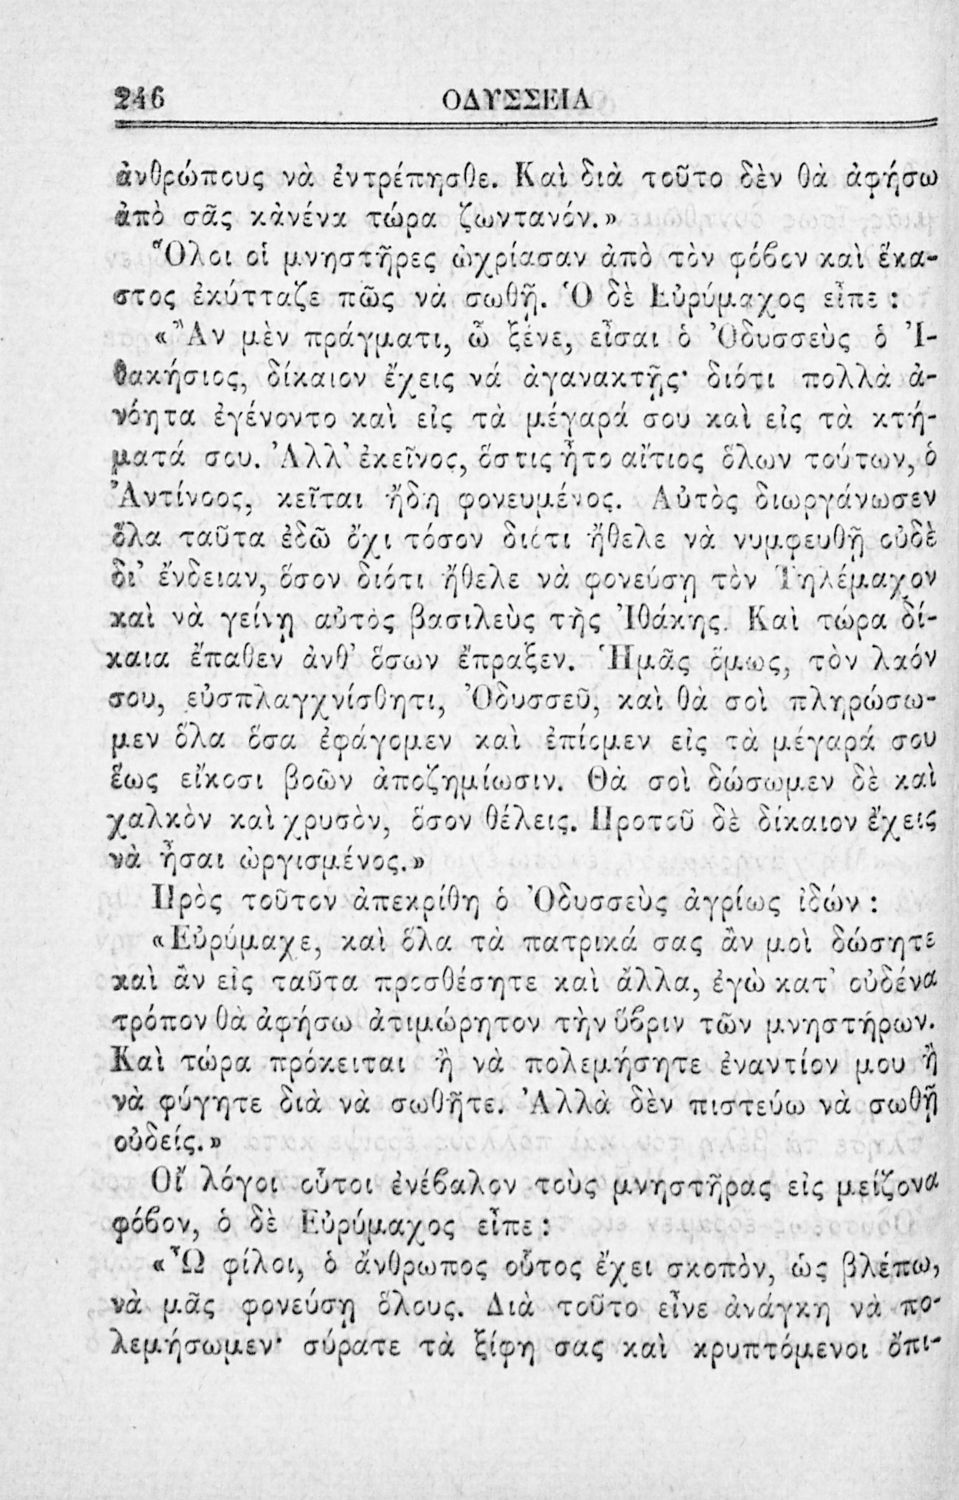 246 ΟΔΥΣΣΕΙΑ
ἀνθρώπους νὰ ἐντρέπησθε. Καὶ διὰ τοῦτο δὲν θὰ ἀφήσω
ἀπὸ σᾶς κἀνένα τώρα ζωντανόν.»
Ὅλοι οἱ μνηστῆρες ὠχρίασαν ἀπὸ τὸν φόβον καὶ ἕκα-
στος ἐκύτταζε πῶς νὰ σωθῇ. Ὁ δὲ Εὐρύμαχος εἶπε :
«Ἂν μὲν πράγματι, ὦ ξένε, εἶσαι ὁ Ὀδυσσεὺς ὁ Ἰ-
θακήσιος, δίκαιον ἔχεις νά ἀγανακτῇς· διότι πολλὰ ἀ-
νόητα ἐγένοντο καὶ εἰς τὰ μέγαρά σου καὶ εἰς τὰ κτή-
ματά σου. Ἀλλ' ἐκεῖνος, ὅστις ἦτο αἴτιος ὅλων τούτων, ὁ
Ἀντίνοος, κεῖται ἤδη φονευμένος. Αὐτὸς διωργάνωσεν
ὅλα ταῦτα ἐδῶ ὄχι τόσον διότι ἤθελε νὰ νυμφευθῇ οὐδὲ
δι' ἔνδειαν, ὅσον διότι ἤθελε νὰ φονεύσῃ τὸν Τηλέμαχον
καὶ νὰ γείνῃ αὐτὸς βασιλεὺς τῆς Ἰθάκης. Καὶ τώρα δί-
καια ἔπαθεν ἀνθ' ὅσων ἔπραξεν. Ἡμᾶς ὅμως, τὸν λαόν
σου, εὐσπλαγχνίσθητι, Ὀδυσσεῦ, καὶ θὰ σοὶ πληρώσω-
μεν ὅλα ὅσα ἐφάγομεν καὶ ἐπίομεν εἰς τὰ μέγαρά σου
ἕως εἴκοσι βοῶν ἀποζημίωσιν. Θὰ σοὶ δώσωμεν δὲ καὶ
χαλκὸν καὶ χρυσὸν, ὅσον θέλεις. Προτοῦ δὲ δίκαιον ἔχεις
νὰ ἦσαι ὠργισμένος.»
Πρὸς τοῦτον ἀπεκρίθη ὁ Ὀδυσσεὺς ἀγρίως ἰδών :
«Εὐρύμαχε, καὶ ὅλα τὰ πατρικά σας ἂν μοὶ δώσητε
καὶ ἂν εἰς ταῦτα προσθέσητε καὶ ἄλλα, ἐγὼ κατ' οὐδένα
τρόπον θὰ ἀφήσω ἀτιμώρητον τὴν ὕβριν τῶν μνηστήρων.
Καὶ τώρα πρόκειται ἢ νὰ πολεμήσητε ἐναντίον μου ἢ
νὰ φύγητε διὰ νὰ σωθῆτε. Ἀλλὰ δὲν πιστεύω νὰ σωθῇ
οὐδείς.»
Οἵ λόγοι οὗτοι ἐνέβαλον τοὺς μνηστῆρας εἰς μείζονα
φόβον, ὁ δὲ Εὐρύμαχος εἶπε :
«Ὦ φίλοι, ὁ ἄνθρωπος οὗτος ἔχει σκοπὸν, ὡς βλέπω,
νὰ μᾶς φονεύσῃ ὅλους. Διὰ τοῦτο εἶνε ἀνάγκη νὰ πο-
λεμήσωμεν· σύρατε τὰ ξίφη σας καὶ κρυπτόμενοι ὄπι-